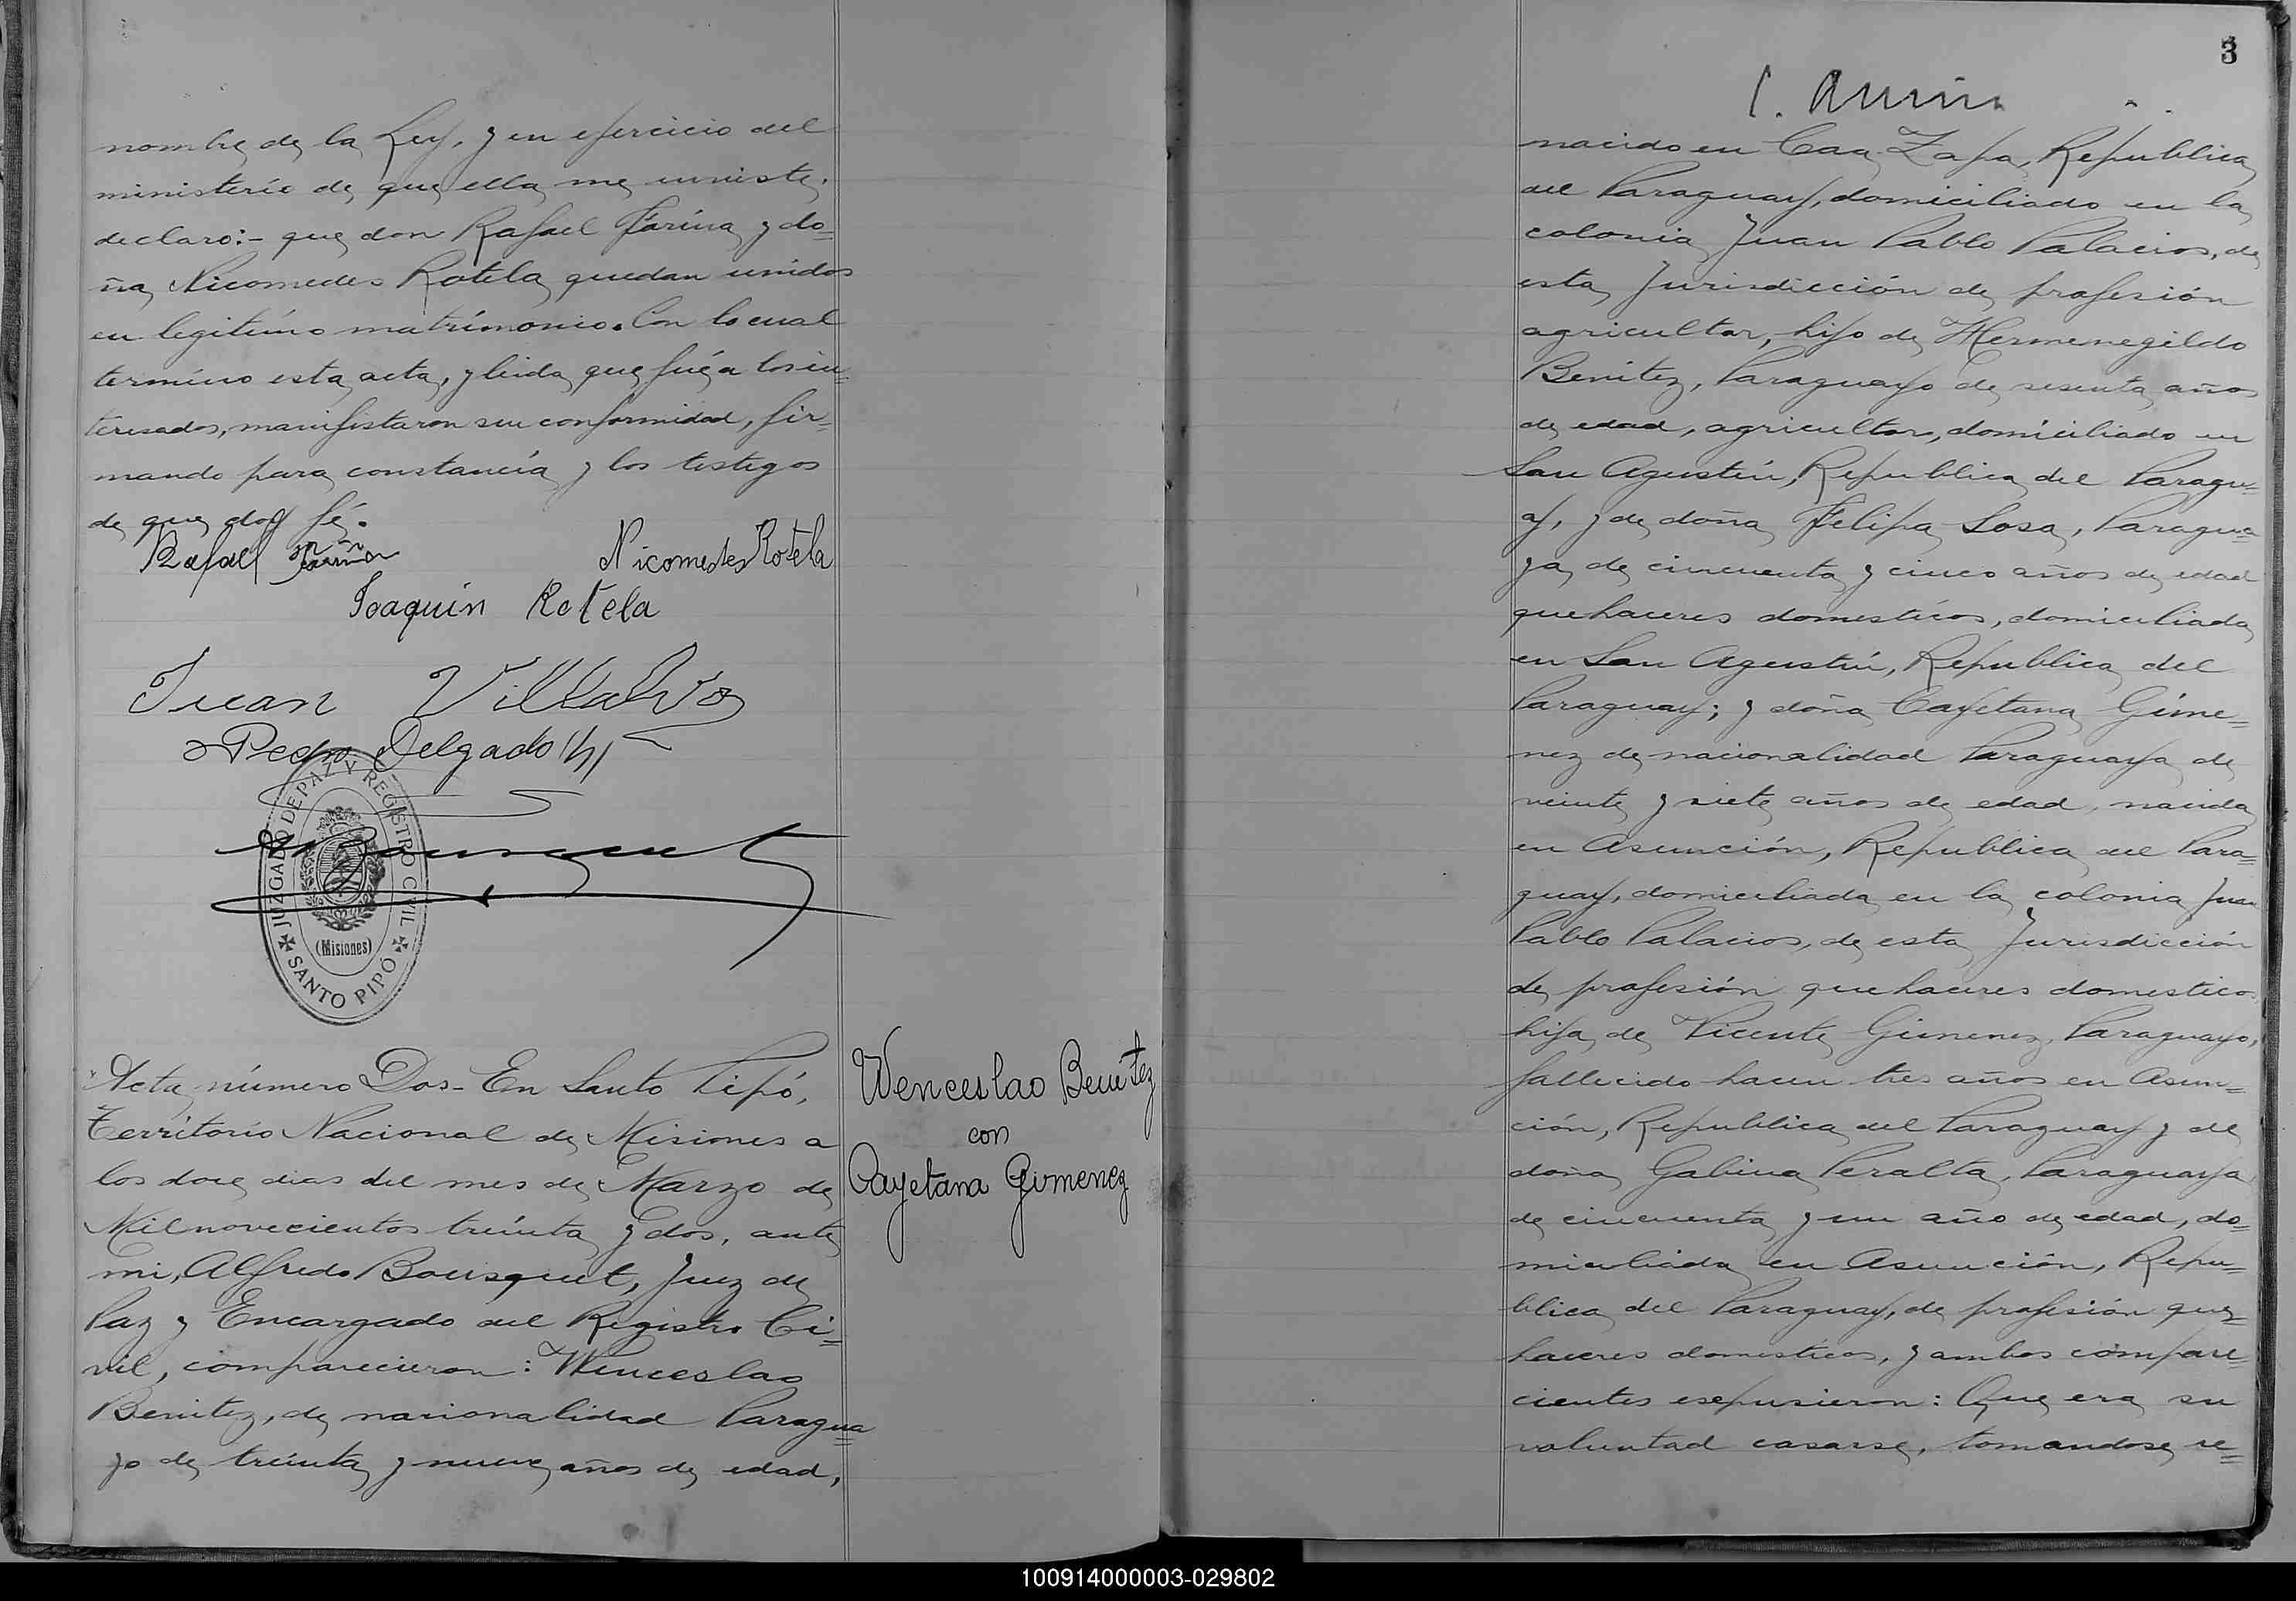 nombre de la Ley, y en ejercicio del
ministerio de que ella me inviste,
declaro:- que don Rafael Fariña y do=
ña Nicomedes Rotela quedan unidos
en legitimo matrimonio. Con lo cual
termino esta acta, y leida que fué a los in=
teresados, manifestaron su conformidad, fir=
mando para constancia y los testigos
de que doy fé.
Rafael Fariña
Nicomedes Rotela
Joaquin Rotela
Juan Villalva
Pedro Delgado (h)
A Bousquet
JUZGADO DE PAZ Y REGISTRO CIVIL
(Misiones)
SANTO PIPÓ
Acta número Dos- En Santo Pipó,
Territorio Nacional de Misiones a
los doce dias del mes de Marzo de
Mil novecientos treinta y dos, ante
mi, Alfredo Bousquet, Juez de
Paz y Encargado del Registro Ci=
vil, comparecieron: Wenceslao
Benitez, de nacionalidad Paragua=
yo de treinta y nueve años de edad,
Wenceslao Benitez
con
Cayetana Gimenez
3
nacido en Caa Zapa, Republica
del Paraguay, domiciliado en la
colonia Juan Pablo Palacios, de
esta Jurisdicción de profesión
agricultor, hijo de Hermenegildo
Benitez, Paraguayo de sesenta años
de edad, agricultor, domiciliado en
San Agustin, Republica del Paragu=
ay, y de doña Felipa Sosa, Paragua=
ya, de cincuenta y cinco años de edad
quehaceres domesticos, domiciliada
en San Agustin, Republica del
Paraguay; y doña Cayetana Gime=
nez de nacionalidad Paraguaya de
veinte y siete años de edad, nacida
en Asunción, Republica del Para=
guay, domiciliada en la colonia Juan
Pablo Palacios, de esta Jurisdicción
de profesión quehaceres domesticos
hija de Vicente Gimenez, Paraguayo,
fallecido hacen tres años en Asun=
ción, Republica del Paraguay y de
doña Gabina Peralta, Paraguaya
de cincuenta y un año de edad, do=
miciliada en Asunción, Repu=
blica del Paraguay, de profesión que=
haceres domesticos, y ambos compare=
cientes esepusieron: Que era su
voluntad casarse, tomandose re=
100914000003-029802